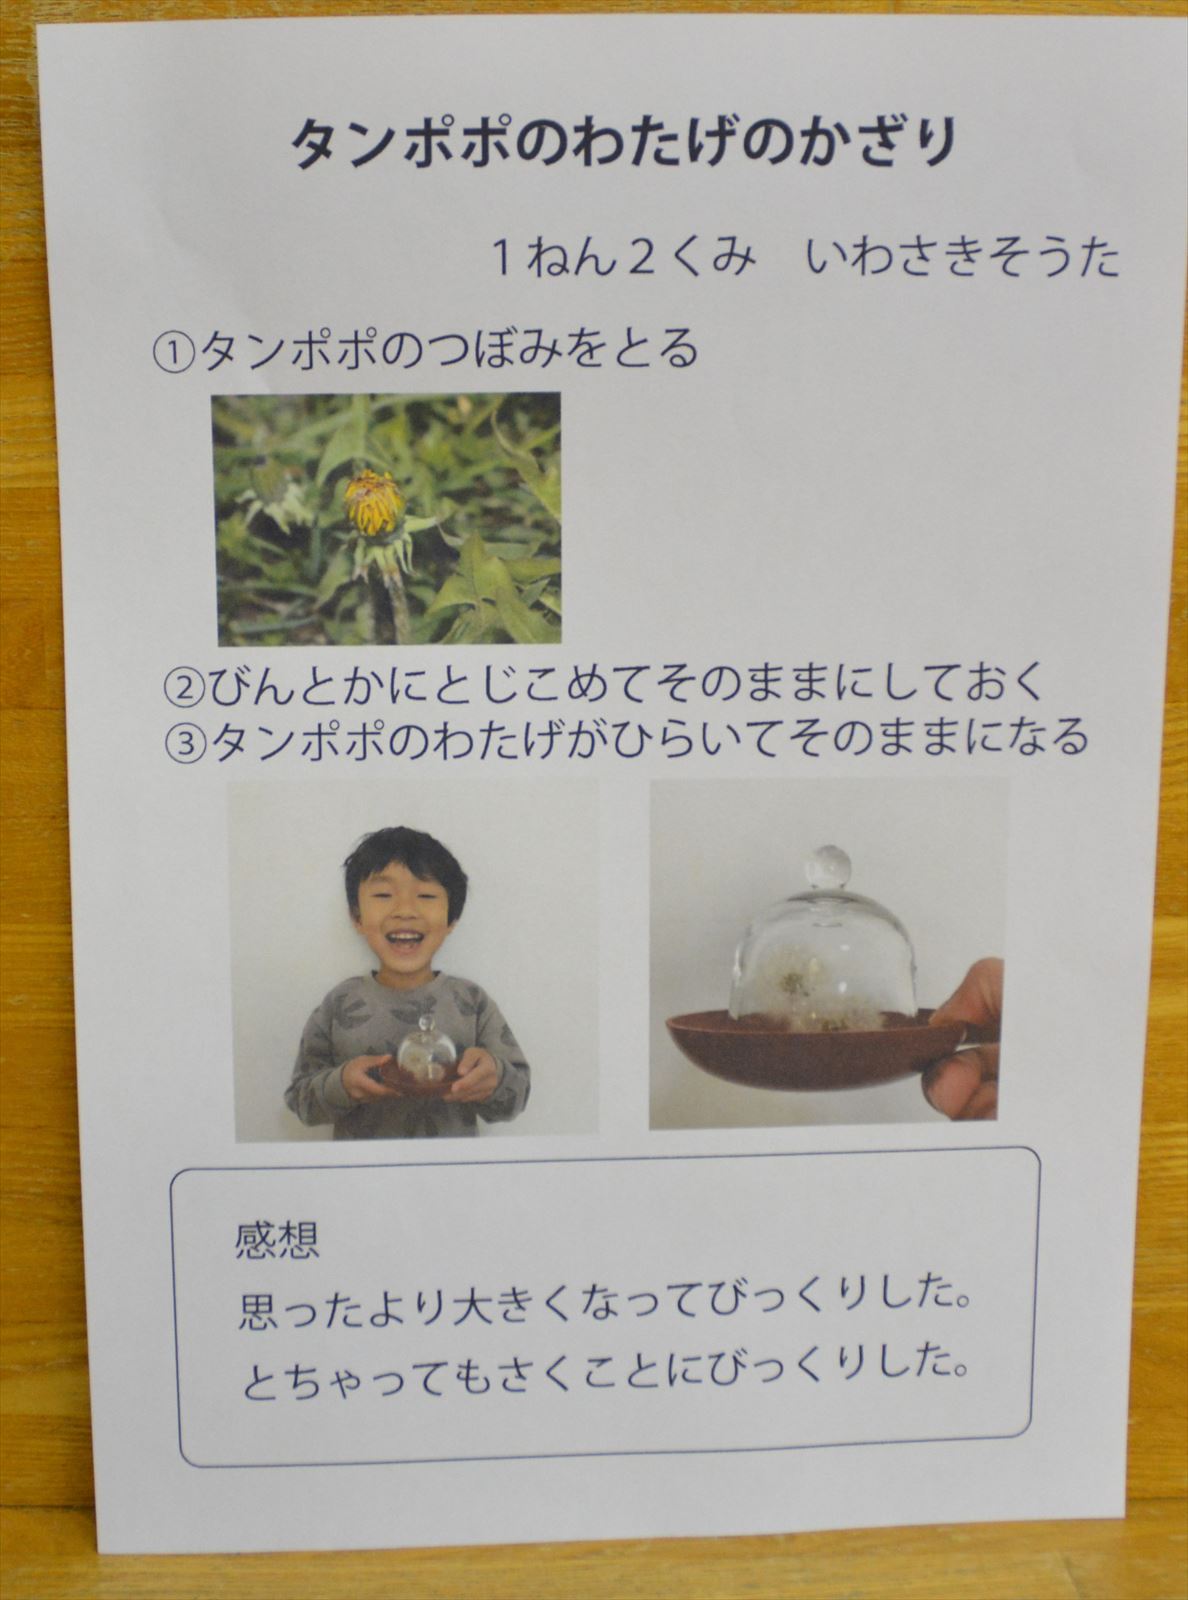 タンポポのわたげのかざり
１ねん２くみ　いわさきそうた
①タンポポのつぼみをとる
②びんとかにとじこめてそのままにしておく
③タンポポのわたげがひらいてそのままになる
感想
思ったより大きくなってびっくりした。
とちゃってもさくことにびっくりした。